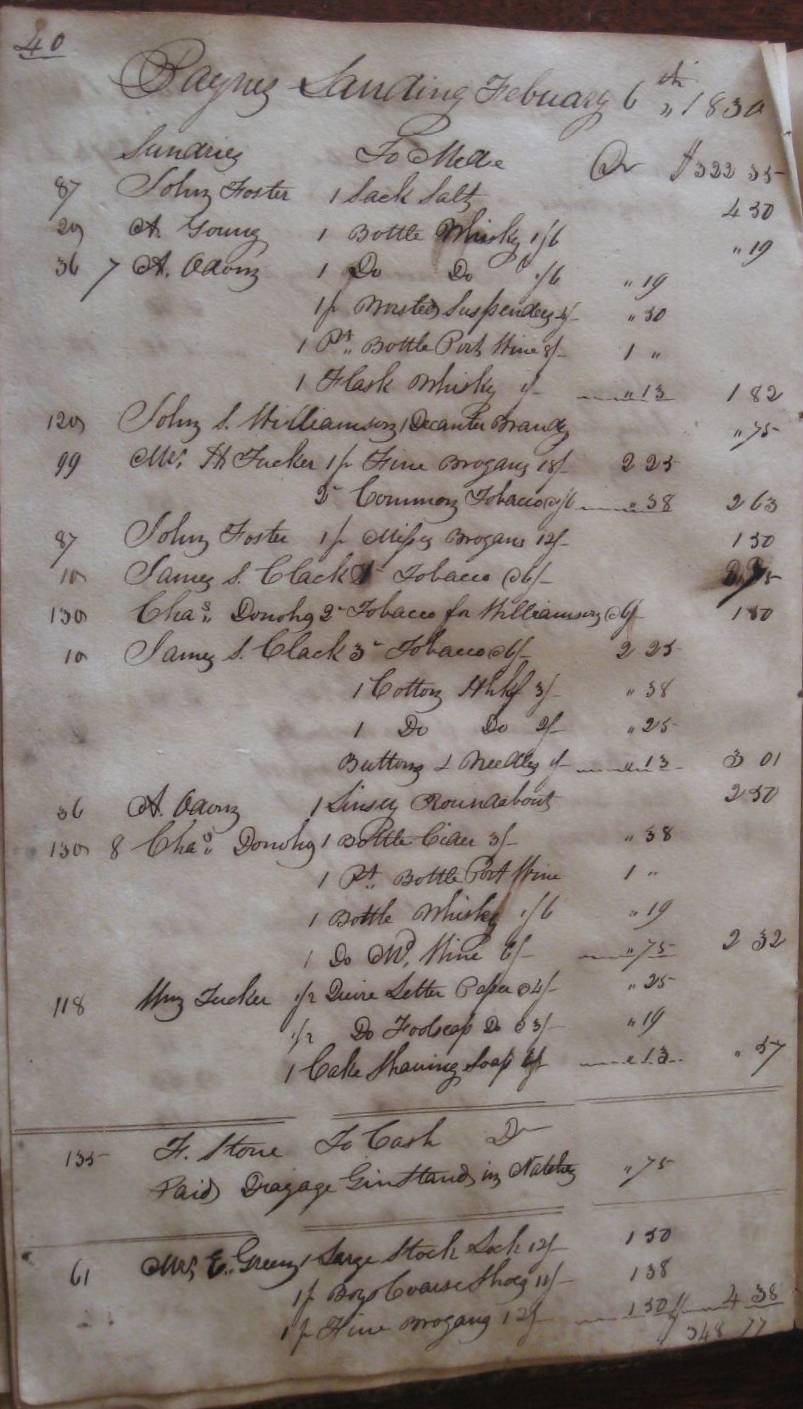 40
Paynes Landing Febuary 6th " 1830
Sundries To Mdse Dr $322 35
87 John Foster 1 Sack Salt 4 50
29 A. Young 1 Bottle Whisky 1/6 " 19
36 7 A. Odom 1 Do Do 1/6 " 19
1 p Worsted Suspenders 4/- " 50
1 Pt Bottle Port Wine 8/- 1 "
1 Flask Whisky 1/- " 13 1 82
120 John S. Williamson 1 Decanter Brandy " 75
99 Mr. H Tucker 1 p Fine Brogans 18/- 2 25
Common Tobacco 38 2 63
87 John Foster 1 p Misses Brogans 12/- 1 50
10 James S. Clack Tobacco @ 6/-
130 Chas. Donoho 2 Tobacco for Williamson @ 6/- 1 50
10 James S. Clack 3 Tobacco @ 6/- 2 25
1 Cotton Hhkf 3/- " 38
1 Do Do 2/- " 25
Buttons & Needles 1/- " 13 3 01
36 A. Odom 1 Linsey Roundabout 2 50
130 8 Chas. Donoho 1 Bottle Cider 3/- " 38
1 Pt. Bottle Port Wine 1 "
1 Bottle Whisky 1/6 " 19
1 Do Md. Wine 6/- " 75 2 32
118 Wm Tucker 1/2 Quire Letter Paper @ 4/- " 25
1/2 Do Foolscap Do @ 3/- " 19
1 Cake Shaving Soap 1/- " 13 " 57
135 F. Stone To Cash Dr
Paid Drayage Ginstand in Natchez " 75
61 Mrs E. Green 1 Large Stock Lock 12/- 1 50
1 p Boys Coarse Shoes 11/- 1 38
1 p Fine Brogans 12/- 1 50 4 38
$348 77